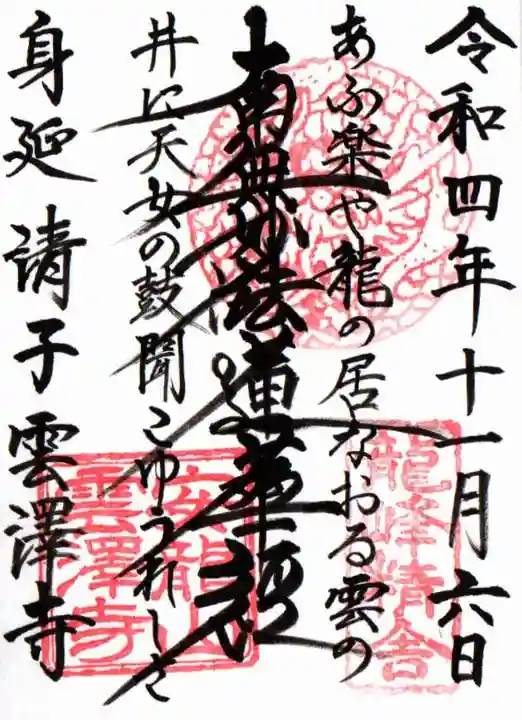 令和四年十一月六日
あふ楽や龍の居なおる雲の
南無妙法蓮華経
井に天女の鼓聞こゆうれしさ
身延 清子 雲澤寺
龍峰精舎
雲澤寺